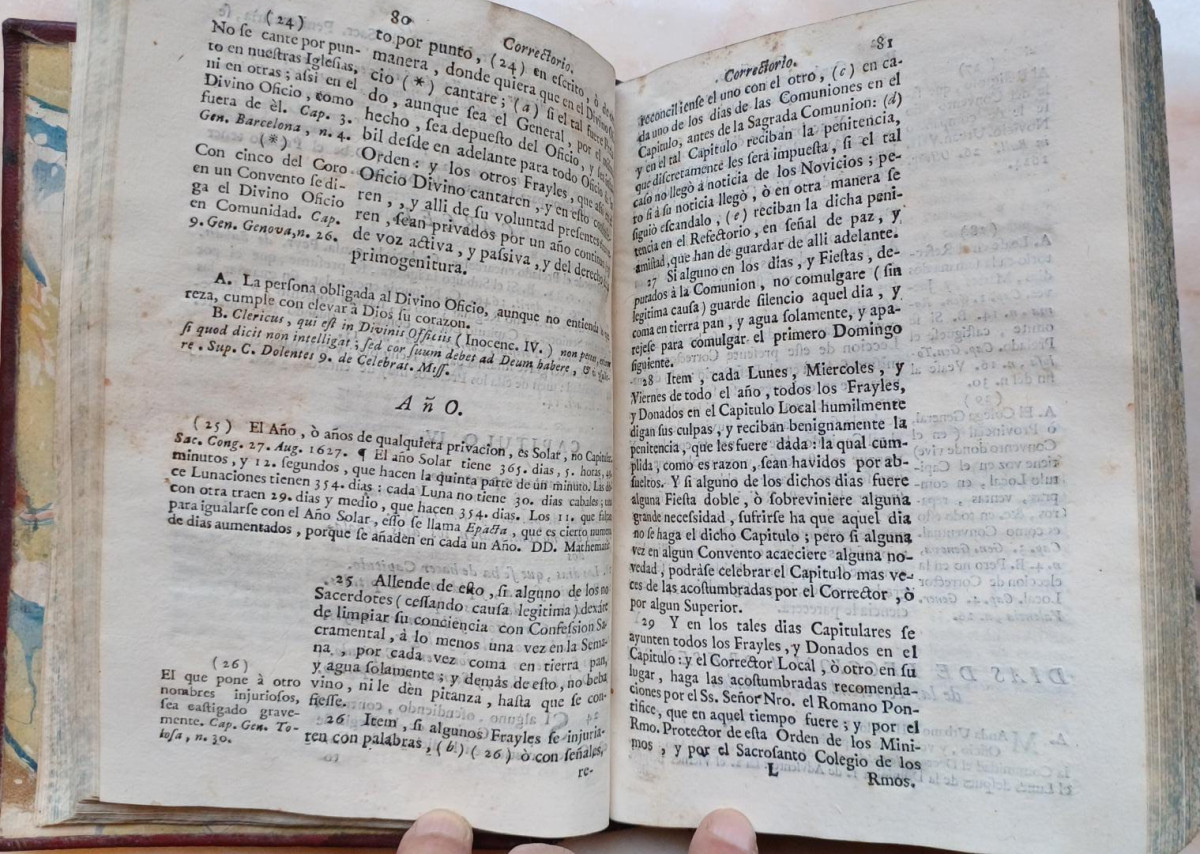 80
Correctorio.
(24)
No se cante por pun-
to en nuestras Iglesias,
ni en otras; assi en el
Divino Oficio, como
fuera de èl. Cap. 3.
Gen. Barcelona, n. 4.
(*)
Con cinco del Coro
en un Convento se di-
ga el Divino Oficio
en Comunidad. Cap.
9. Gen. Genova, n. 26.
to por punto, (24) en escrito, ò de
manera, donde quiera que en el Divino
cio (*) cantare; (a) si el tal fuere
do, aunque sea el General, por el
hecho, sea depuesto del Oficio, y
bil desde en adelante para todo Oficio
Orden: y los otros Frayles, que assi
Oficio Divino cantaren, y en esto
ren, y alli de su voluntad presentes
ren, sean privados por un año continuo
de voz activa, y passiva, y del derecho
primogenitura.
A. La persona obligada al Divino Oficio, aunque no entienda
reza, cumple con elevar à Dios su corazon.
B. Clericus, qui est in Divinis Officiis (Inocenc. IV.) non
si quod dicit non intelligat; sed cor suum debet ad Deum habere,
re. Sup. C. Dolentes 9. de Celebrat. Miss.
AñO.
(25) El Año, ò años de qualquiera privacion, es Solar, no
Sac. Cong. 27. Aug. 1627. ¶ El año Solar tiene 365. dias, 5. horas,
minutos, y 12. segundos, que hacen la quinta parte de un minuto. Las
ce Lunaciones tienen 354. dias: cada Luna no tiene 30. dias cabales;
con otra traen 29. dias y medio, que hacen 354. dias. Los 11. que
para igualarse con el Año Solar, esso se llama Epacta, que es cierto
de dias aumentados, porque se añaden en cada un Año. DD.
25 Allende de esto, si alguno de los no
Sacerdotes (cessando causa legitima) dexàre
de limpiar su conciencia con Confession Sa-
cramental, à lo menos una vez en la Sema-
na, por cada vez coma en tierra pan,
y agua solamente; y demás de esto, no beba
vino, ni le dèn pitanza, hasta que se con-
fiesse.
26 Item, si algunos Frayles se injuria-
ren con palabras, (b) (26) ò con señales,
re-
(26)
El que pone à otro
nombres injuriosos,
sea castigado grave-
mente. Cap. Gen. To-
losa, n. 30.
81
Correctorio.
reconciliense el uno con el otro, (c) en ca-
da uno de los dias de las Comuniones en el
Capitulo, antes de la Sagrada Comunion: (d)
y en el tal Capitulo reciban la penitencia,
que discretamente les será impuesta, si el tal
caso no llegò à noticia de los Novicios; pe-
ro si à su noticia llegò, ò en otra manera se
siguiò escandalo, (e) reciban la dicha peni-
tencia en el Refectorio, en señal de paz, y
amistad, que han de guardar de alli adelante.
27 Si alguno en los dias, y Fiestas, de-
putados à la Comunion, no comulgare (sin
legitima causa) guarde silencio aquel dia, y
coma en tierra pan, y agua solamente, y apa-
rejese para comulgar el primero Domingo
siguiente.
28 Item, cada Lunes, Miercoles, y
Viernes de todo el año, todos los Frayles,
y Donados en el Capitulo Local humilmente
digan sus culpas, y reciban benignamente la
penitencia, que les fuere dada: la qual cum-
plida, como es razon, sean havidos por ab-
sueltos. Y si alguno de los dichos dias fuere
alguna Fiesta doble, ò sobreviniere alguna
grande necessidad, sufrirse ha que aquel dia
no se haga el dicho Capitulo; pero si alguna
vez en algun Convento acaeciere alguna no-
vedad, podráse celebrar el Capitulo mas ve-
ces de las acostumbradas por el Corrector, ò
por algun Superior.
29 Y en los tales dias Capitulares se
ayunten todos los Frayles, y Donados en el
Capitulo: y el Corrector Local, ò otro en su
lugar, haga las acostumbradas recomenda-
ciones por el Ss. Señor Nro. el Romano Pon-
tifice, que en aquel tiempo fuere; y por el
Rmo. Protector de esta Orden de los Mini-
mos, y por el Sacrosanto Colegio de los
L
Rmos.